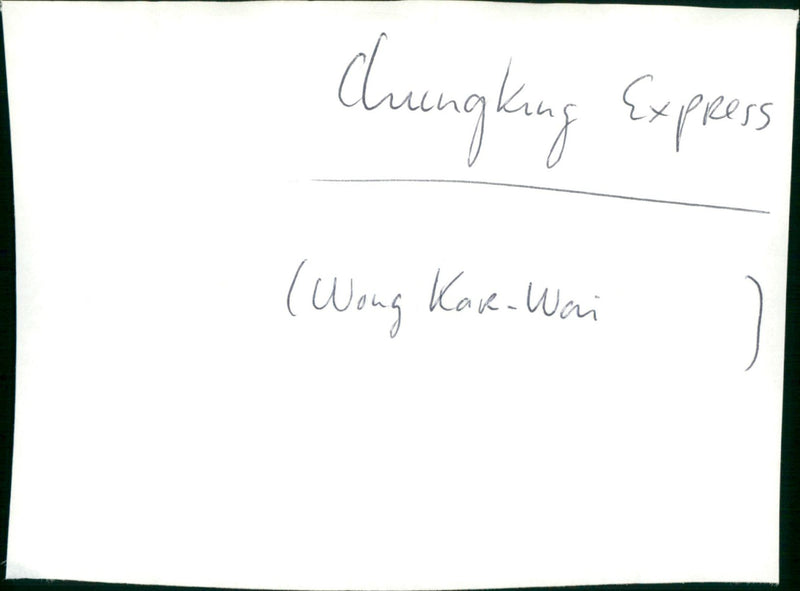 Chungking Express
(Wong Kar-Wai )